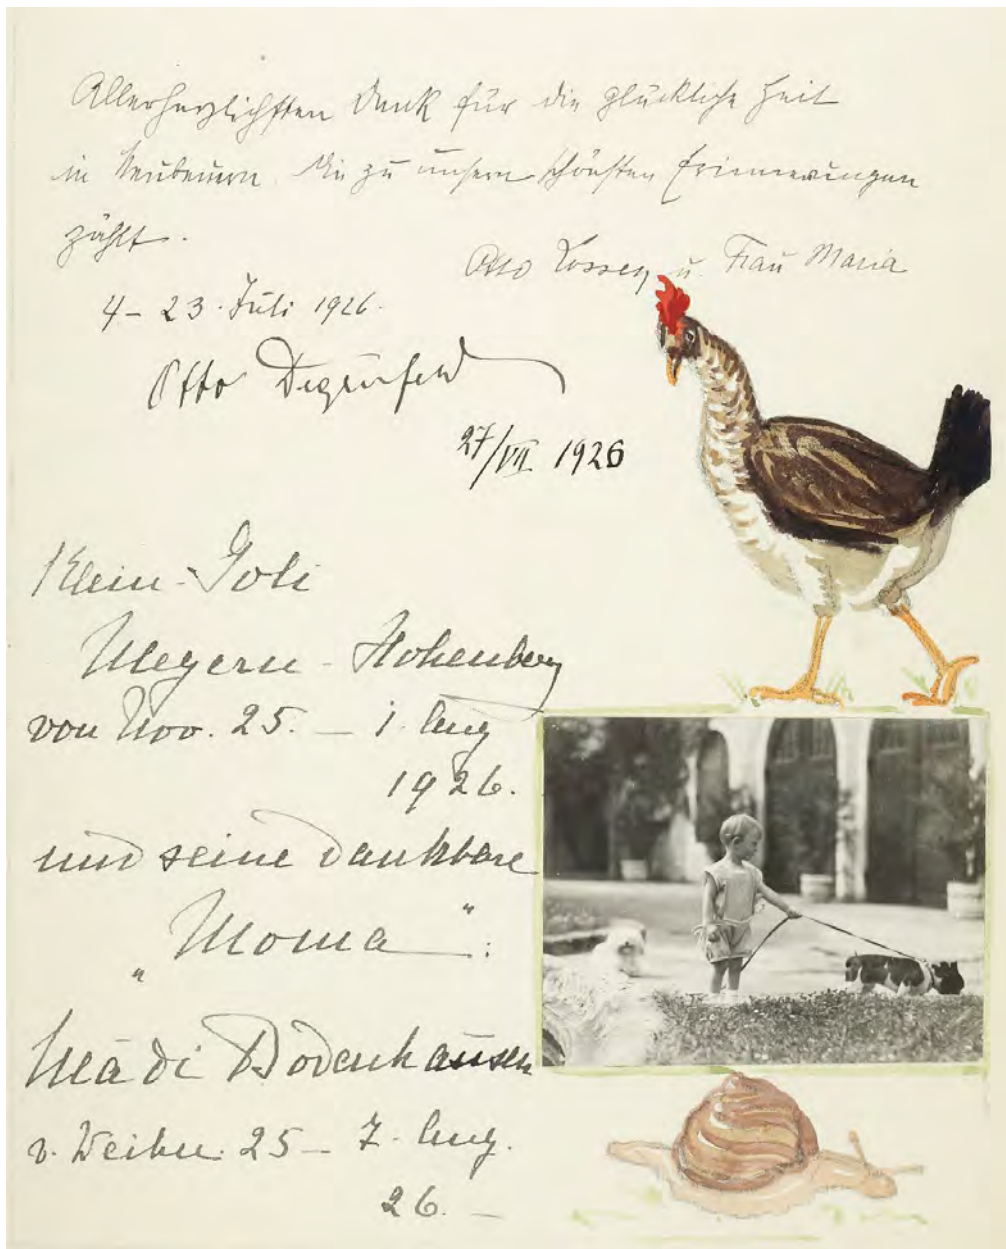 Allerherzlichsten Dank für die glückliche Zeit
in Neubeuern die zu unsern schönsten Erinnerungen
zählt.
Otto Lossen u. Frau Maria
4 – 23. Juli 1926.
Otto Degenfeld
27/VII 1926
Klein-Goli
Meyern-Hohenberg
von Nov. 25. – 1. Aug
1926.
und seine dankbare
"Moma".
Mädi Bodenhausen
v. Weihn. 25 – 7. Aug.
26. –